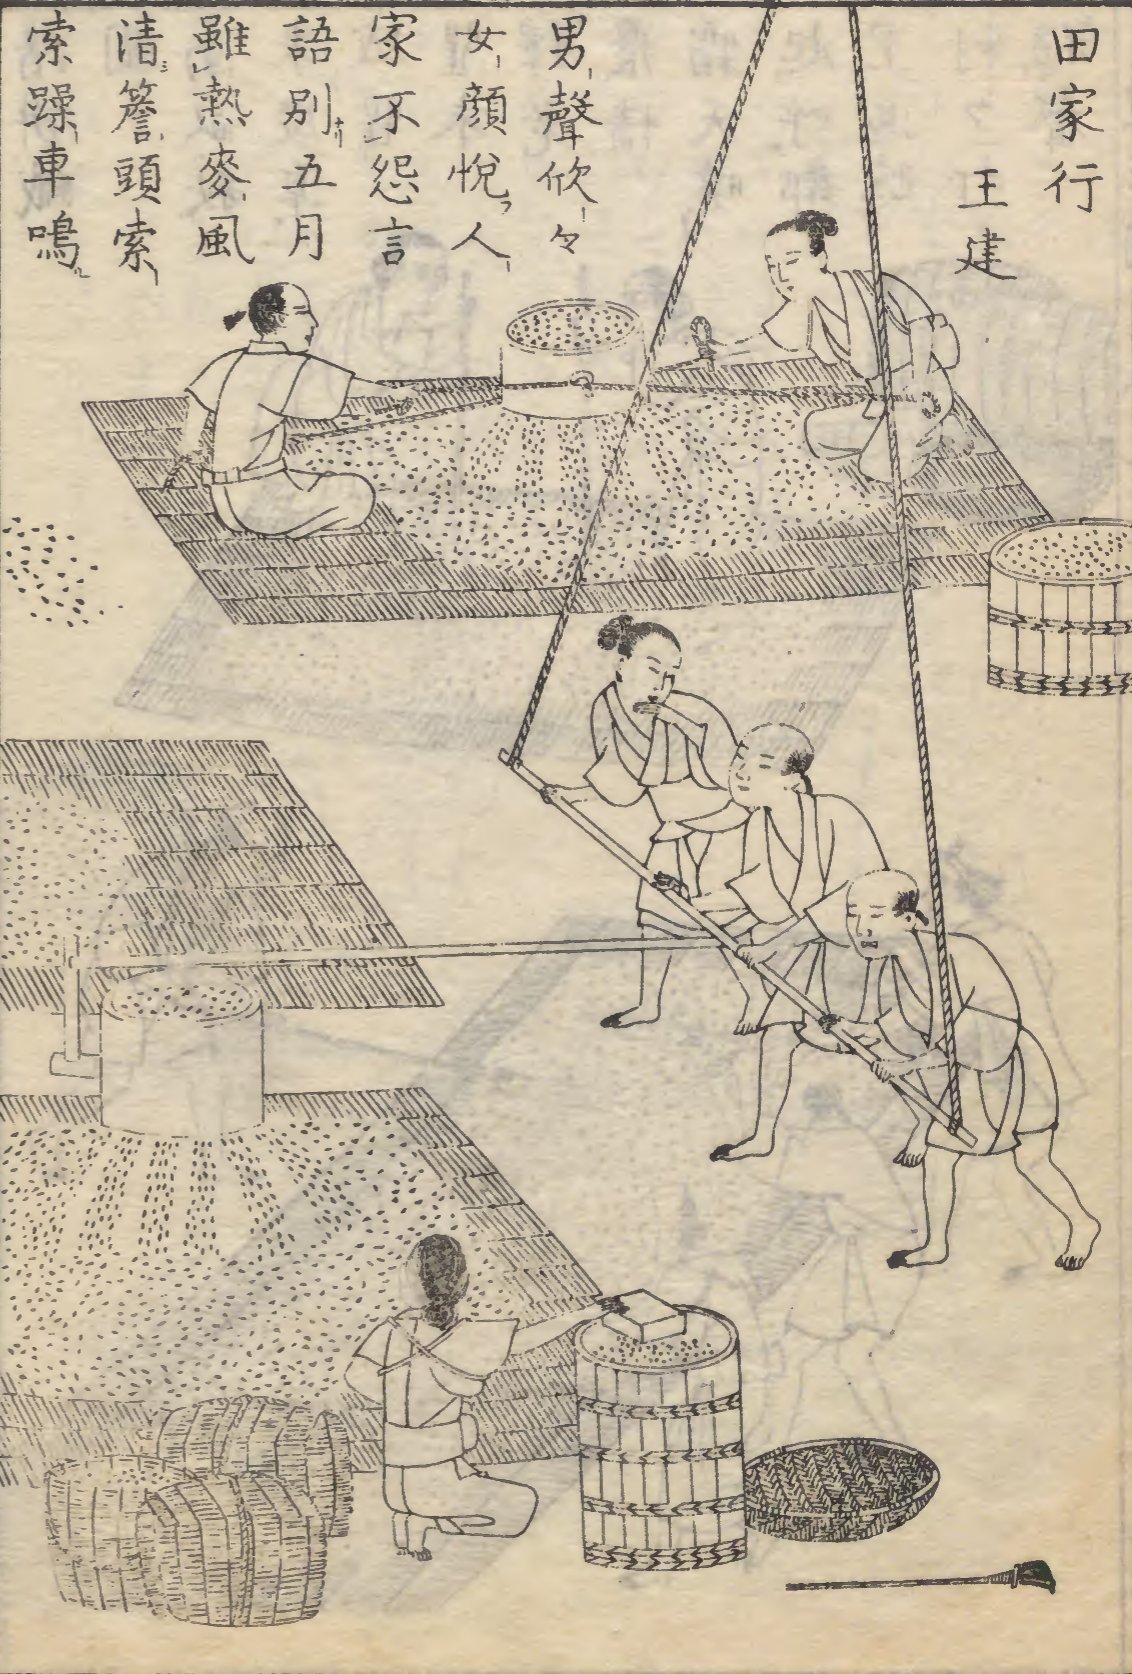 田家行
王建
男聲欣々
女顔悦人
家不怨言
語別五月
雖熱麥風
清簷頭索
索躁車鳴